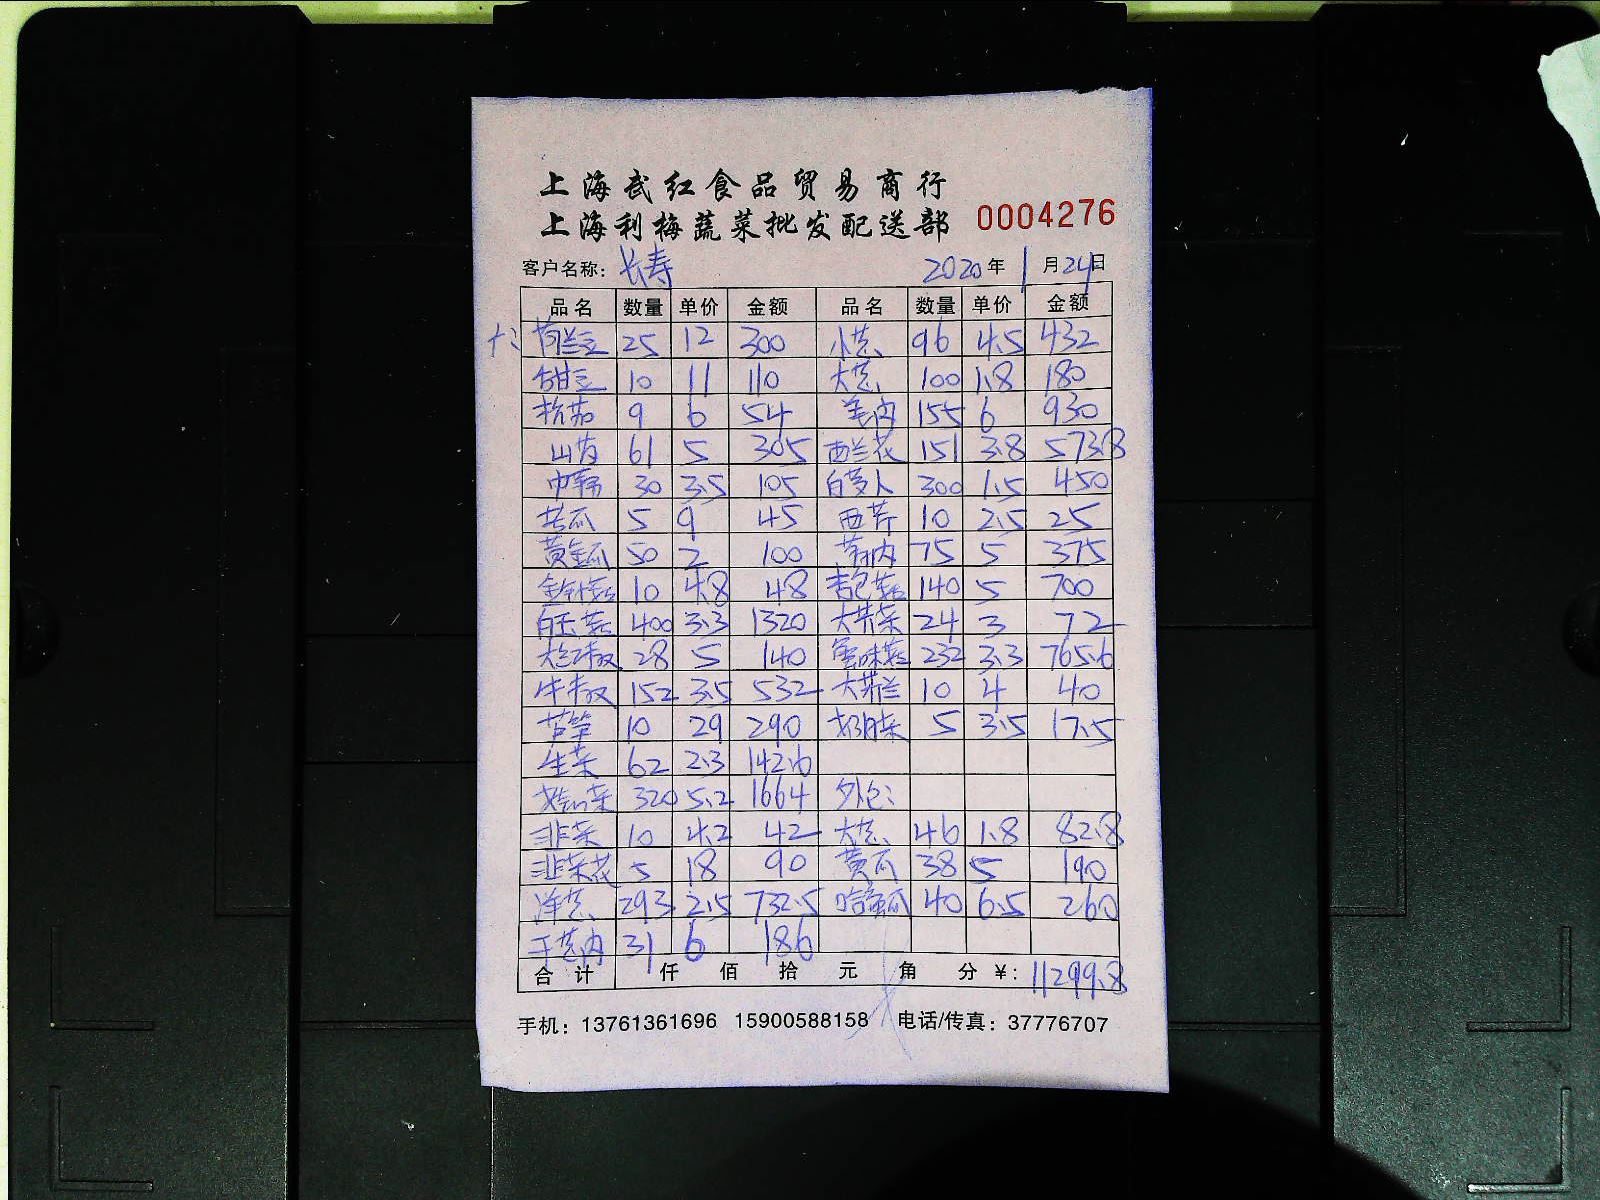 上海武红食品贸易商行
上海利梅蔬菜批发配送部 0004276
客户名称: 长寿 2020年 1月24日
品名 数量 单价 金额 品名 数量 单价 金额
荷兰豆 25 12 300 小葱 96 4.5 432
甜豆 10 11 110 大葱 100 1.8 180
杭茄 9 6 54 姜肉 155 6 930
山芋 61 5 305 西兰花 151 3.8 573.8
30 3.5 105 白萝卜 300 1.5 450
苦瓜 5 9 45 西芹 10 2.5 25
黄金瓜 50 2 100 75 5 375
金针菇 10 4.8 48 杏包菇 140 5 700
白玉菇 400 3.3 1320 大芥菜 24 3 72
大红椒 28 5 140 蟹味菇 232 3.3 765.6
牛椒 152 3.5 532 大芥兰 10 4 40
芦笋 10 29 290 奶白菜 5 3.5 17.5
生菜 62 2.3 142.6
320 5.2 1664 外仓:
韭菜 10 4.2 42 大葱 46 1.8 82.8
韭菜花 5 18 90 黄瓜 38 5 190
洋葱 293 2.5 732.5 哈密瓜 40 6.5 260
干葱肉 31 6 186
合计 仟 佰 拾 元 角 分 ¥: 11299.8
手机: 13761361696 15900588158 电话/传真: 37776707